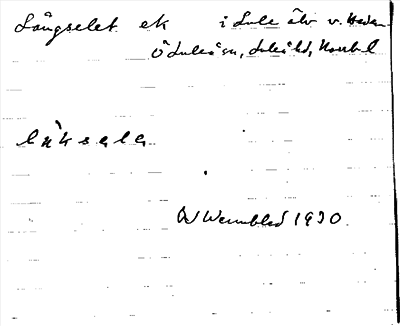 Långselet ek i Lule älv v. Heden
Ö Luleå sn, Luleå td, Norrb l
låksela
W Wennblad 1930.